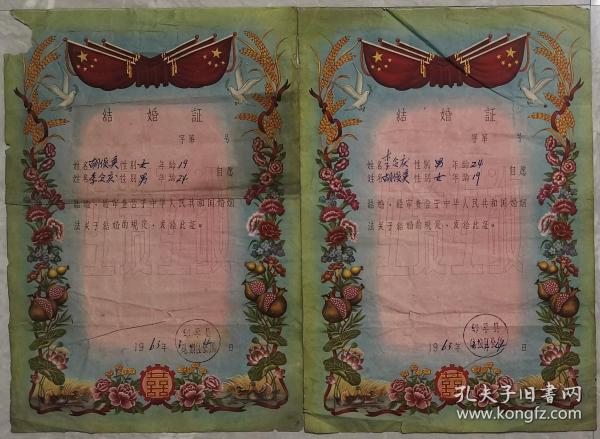 結婚証
字第 号
姓名 胡俊英 性別 女 年龄 19
姓名 李全庆 性別 男 年龄 24 自愿
結婚，經审查合于中华人民共和国婚姻
法关于結婚的規定，发給此証。
1963年 日
結婚証
字第 号
姓名 李全庆 性別 男 年龄 24
姓名 胡俊英 性別 女 年龄 19 自愿
結婚，經审查合于中华人民共和国婚姻
法关于結婚的規定，发給此証。
1963年 日
孔夫子旧书网
www.kongfz.com